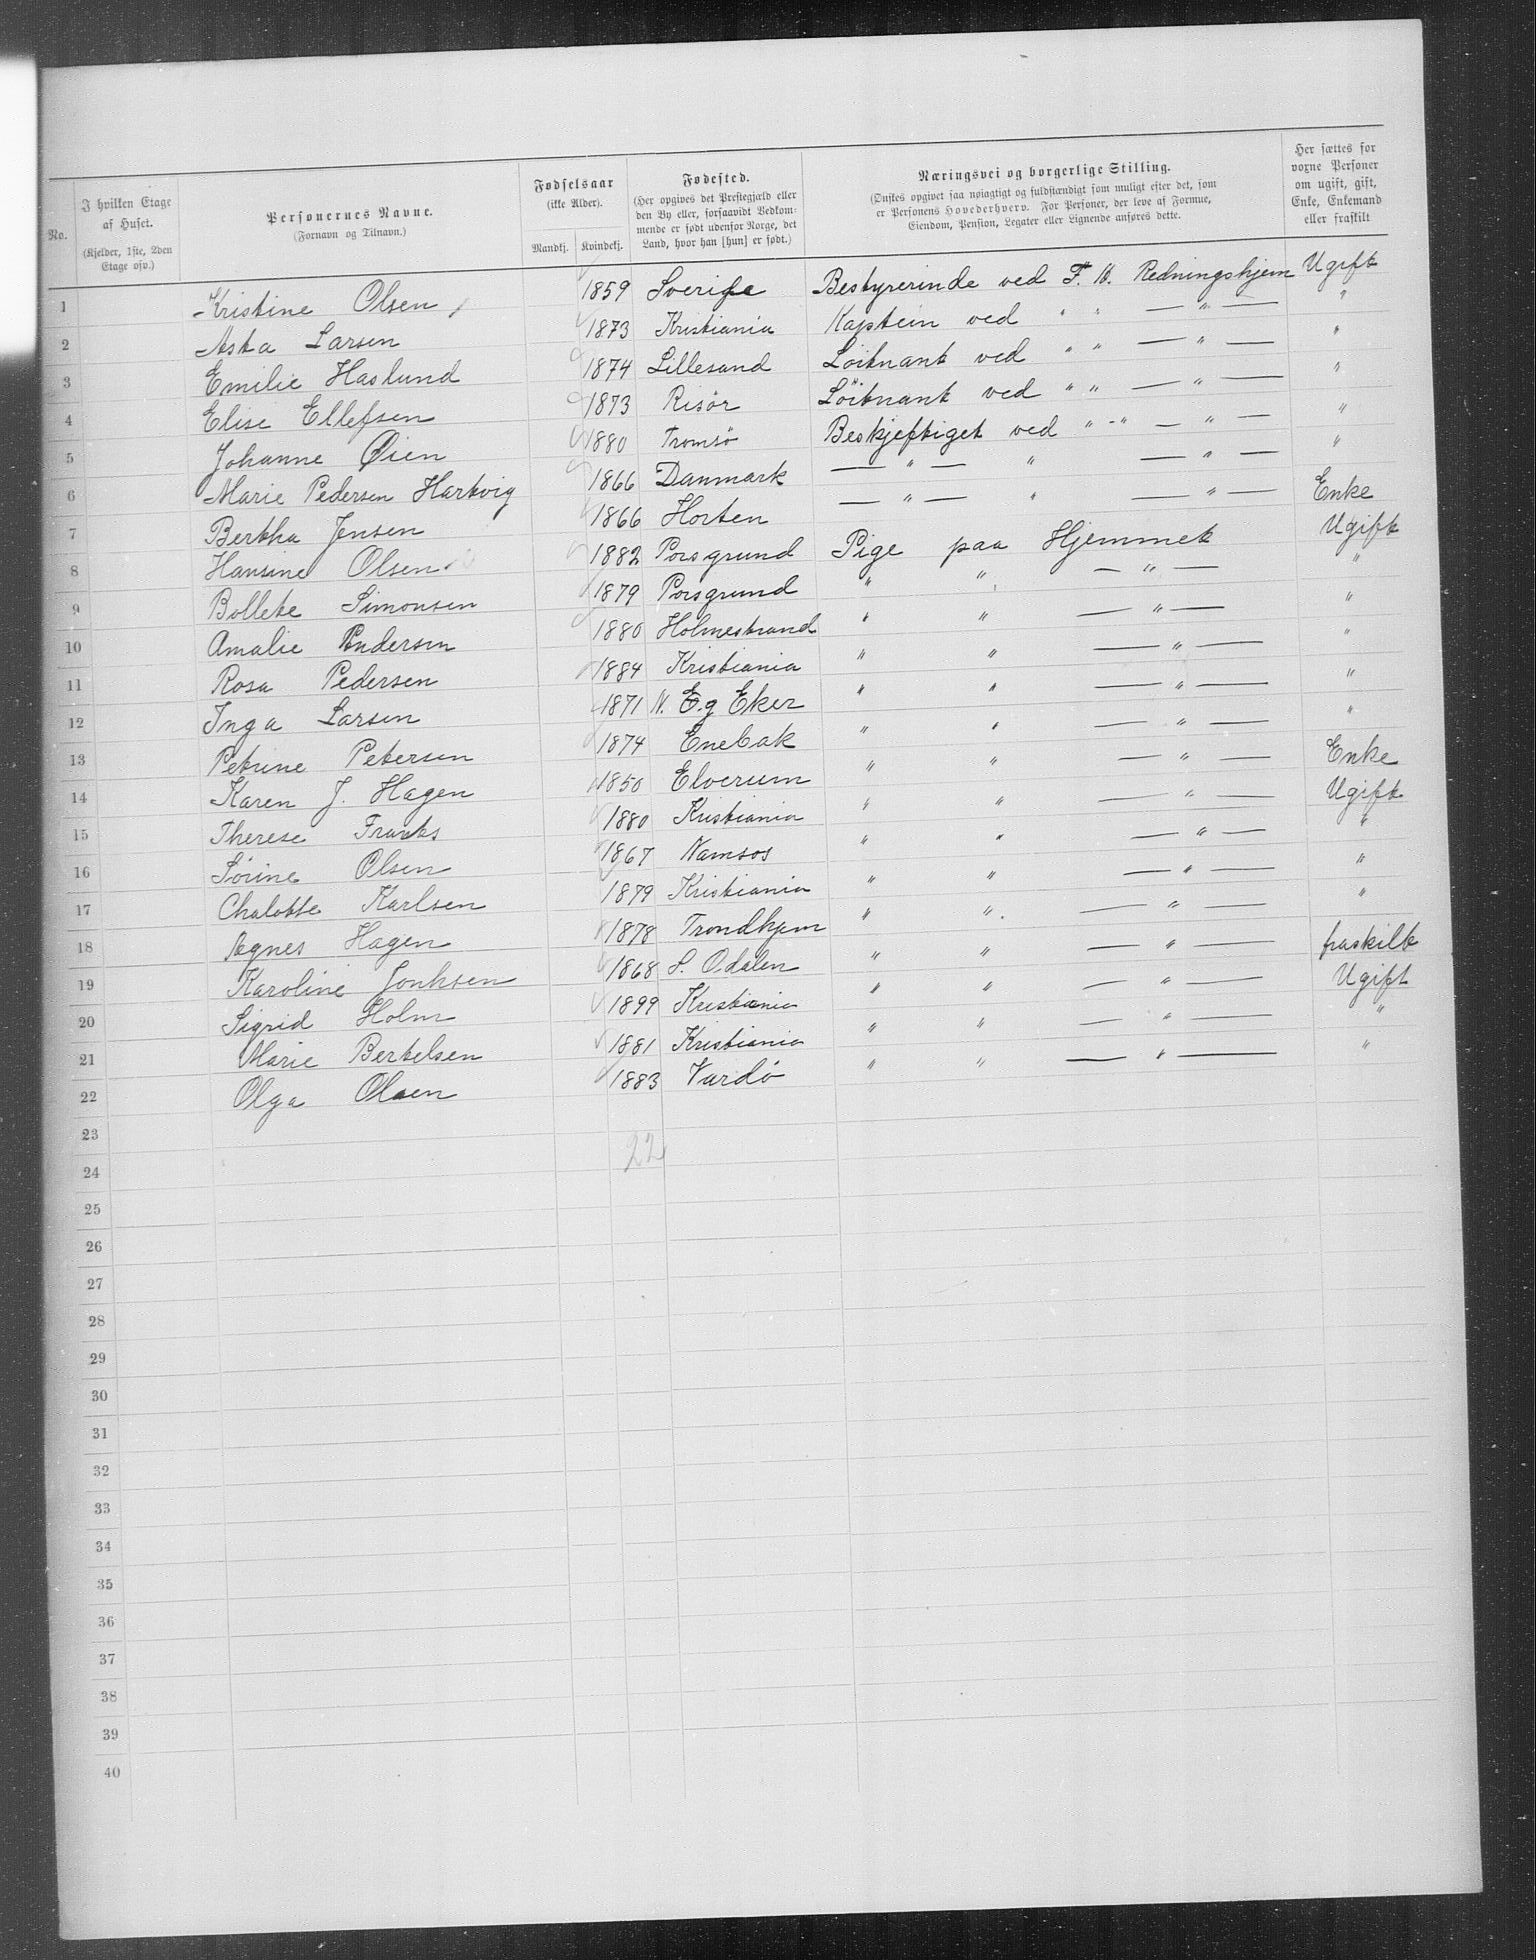 No.
I hvilken Etage af Huset.
(Kjelder, 1ste, 2den Etage osv.)
Personernes Navne.
(Fornavn og Tilnavn.)
Fødselsaar
(ikke Alder).
Mandkj. Kvindekj.
Fødested.
(Her opgives det Prestegjæld eller den By eller, forsaavidt Vedkommende er født udenfor Norge, det Land, hvor han [hun] er født.)
Næringsvei og borgerlige Stilling.
(Ønskes opgivet saa nøiagtigt og fuldstændigt som muligt efter det, som er Personens Hovederhverv. For Personer, der leve af Formue, Eiendom, Pension, Legater eller Lignende anføres dette.
Her sættes for voxne Personer om ugift, gift, Enke, Enkemand eller fraskilt
1 Kristine Olsen 1859 Sverige Bestyrerinde ved F. Redningshjem Ugift
2 Asta Larsen 1873 Kristiania Kaptein ved " " — " — "
3 Emilie Haslund 1874 Lillesand Löitnant ved " " — " — "
4 Elise Ellefsen 1873 Risör Löitnant ved " " — " — "
5 Johanne Øien 1880 Tromsö Beskjeftiget ved " " — " — "
6 Marie Pedersen Hartvig 1866 Danmark — " — " — " — "
7 Bertha Jensen 1866 Horten — " — " — " — Enke
8 Hansine Olsen 1882 Porsgrund Pige paa Hjemmet Ugift
9 Bollete Simonsen 1879 Porsgrund " " — " — "
10 Amalie Andersen 1880 Holmestrand " " — " — "
11 Rosa Pedersen 1884 Kristiania " " — " — "
12 Inga Larsen 1871 N. Eker " " — " — "
13 Petrine Petersen 1874 Enebak " " — " — "
14 Karen J. Hagen 1850 Elverum " " — " — Enke
15 Therese Franks 1880 Kristiania " " — " — Ugift
16 Sörine Olsen 1867 Namsos " " — " — "
17 Chalotte Karlsen 1879 Kristiania " " — " — "
18 Agnes Hagen 1878 Trondhjem " " — " — "
19 Karoline Jonhsen 1868 S. Odalen " " — " — fraskilt
20 Sigrid Holm 1899 Kristiania " " — " — Ugift
21 Marie Bertelsen 1881 Kristiania " " — " — "
22 Olga Olsen 1883 Vardö " " — " — "
23
22
24
25
26
27
28
29
30
31
32
33
34
35
36
37
38
39
40